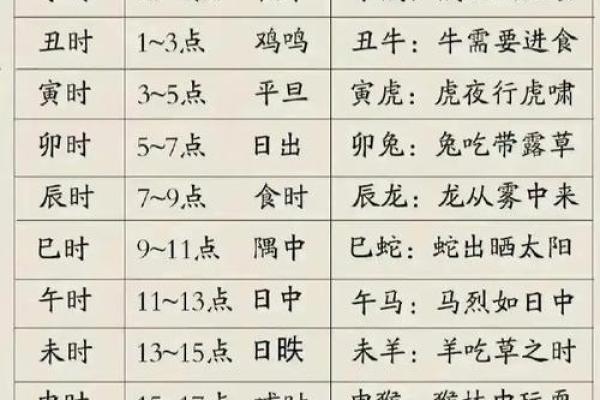 丑时 1~3点 鸡鸣 丑牛：牛需要进食
寅时 3~5点 平旦 寅虎：虎夜行虎啸
卯时 5~7点 日出 卯兔：兔吃带露草
辰时 7~9点 食时 辰龙：龙从雾中来
巳时 9~11点 隅中 巳蛇：蛇出晒太阳
午时 11~13点 日中 午马：马烈如日中
未时 13~15点 日昳 未羊：羊吃草之时